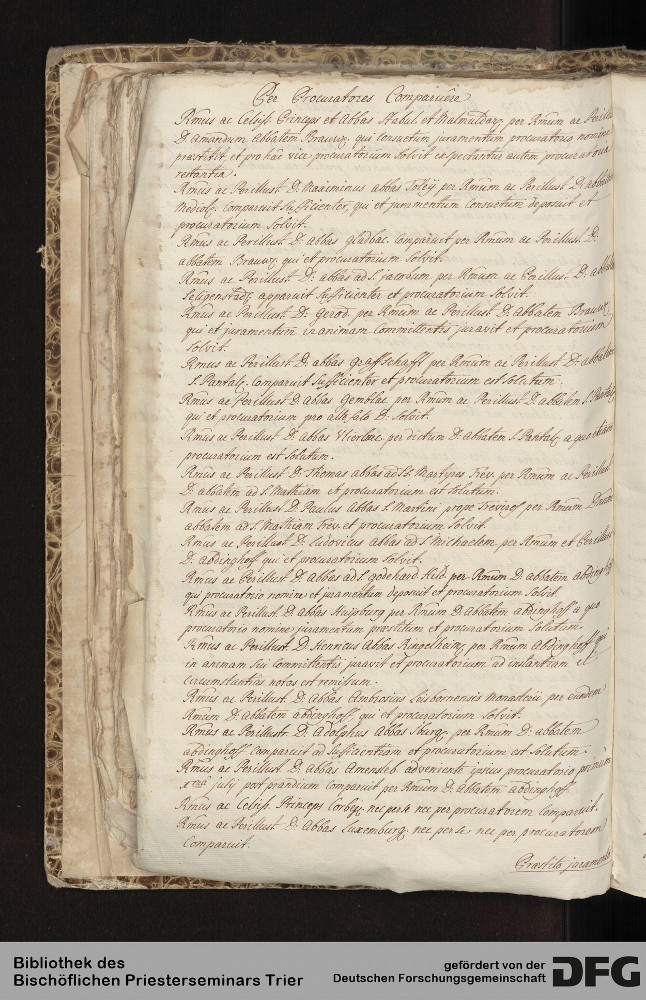 Per Procuratores Comparuêre
Rmus ac Celsiss. Princeps et Abbas Stabul. et Malmūdar; per Rmum ac Perillust.
D. Amandum Abbatem Brauwz. qui consuetum juramentum procuratorio nomine
praestitit, et pro hâc vice procuratorium solvit expectantur autem procuratoria
restantia.
Rmus ac Perillust. D. Maximinus abbas Tolej per Rmum ac Perillust. D. abbatem
Mediol; comparuit sufficienter, qui et juramentum consuetum deposuit et
procuratorium solvit.
Rmus ac Perillust. D. abbas Gladbac. comparuit per Rmum ac Perillust. D.
abbatem Brauwz. qui et procuratorium solvit.
Rmus ac Perillust. D. abbas ad S. Jacobum per Rmum ac Perillust. D. abbatem
Seligenstadz apparuit sufficienter et procuratorium solvit.
Rmus ac Perillust. D. Gerod. per Rmum ac Perillust. D. Abbatem Brauwz
qui et juramentum in animam Committentis juravit et procuratorium
solvit.
Rmus ac Perillust. D. abbas Graffschafft per Rmum ac Perillust. D. abbatem
S. Pantal; comparuit sufficienter et procuratorium est solutum.
Rmus ac Perillust. D. abbas Gemblac. per Rmum ac Perillust. D. abbatem S. Pantal;
qui et procuratorium pro allefato D. solvit.
Rmus ac Perillust. D. abbas Vlierbac. per dictum D. abbatem S. Pantal; a quo etiam
procuratorium est solutum.
Rmus ac Perillust. D. Thomas abbas ad SS. Martyres Trev. per Rmum ac Perillust.
D. abbatem ad S. Mathiam et procuratorium est solutum.
Rmus ac Perillust. D. Paulus Abbas S. Martini prope Treviros per Rmum Dnum
abbatem ad S. Mathiam Trev. et procuratorium solvit.
Rmus ac Perillust. D. Ludovicus abbas ad S. Michaelem per Rmum et Perillust.
D. abdinghoff qui et procuratorium solvit.
Rmus ac Perillust. D. abbas ad S. Godehard. Held. per Rmum D. abbatem abdinghoff
qui procuratorio nomine et juramentum deposuit et procuratorium solvit.
Rmus ac Perillust. D. Abbas Huysburg per Rmum D. Abbatem abdinghoff a quo
procuratorio nomine juramentum praestitum et procuratorium solutum.
Rmus ac Perillust. D. Henricus Abbas Ringelheim; per Rmum Abdinghoff qui
in animam sui Committentis juravit et procuratorium ad instantiam et
circumstantias notas est remissum.
Rmus ac Perillust. D. Abbas Ambrosius Leisbornensis Monasterii per eundem
Rmum D. Abbatem abdinghoff, qui et procuratorium solvit.
Rmus ac Perillustr. D. Adolphus Abbas Iburg; per Rmum D. abbatem
abdinghoff comparuit ad sufficientiam et procuratorium est solutum.
Rmus ac Perillust. D. abbas Amensleb. adveniente ipsius procuratorio primum
july post prandium comparuit per Rmum D. Abbatem abdinghoff.
Rmus ac Celsiss. Princeps Corbej; nec per se nec per procuratorem comparuit.
Rmus ac Perillust. D. Abbas Luxemburg; nec per se, nec per procuratorem
comparuit.
Praestito juramento
Bibliothek des
Bischöflichen Priesterseminars Trier
gefördert von der
Deutschen Forschungsgemeinschaft
DFG